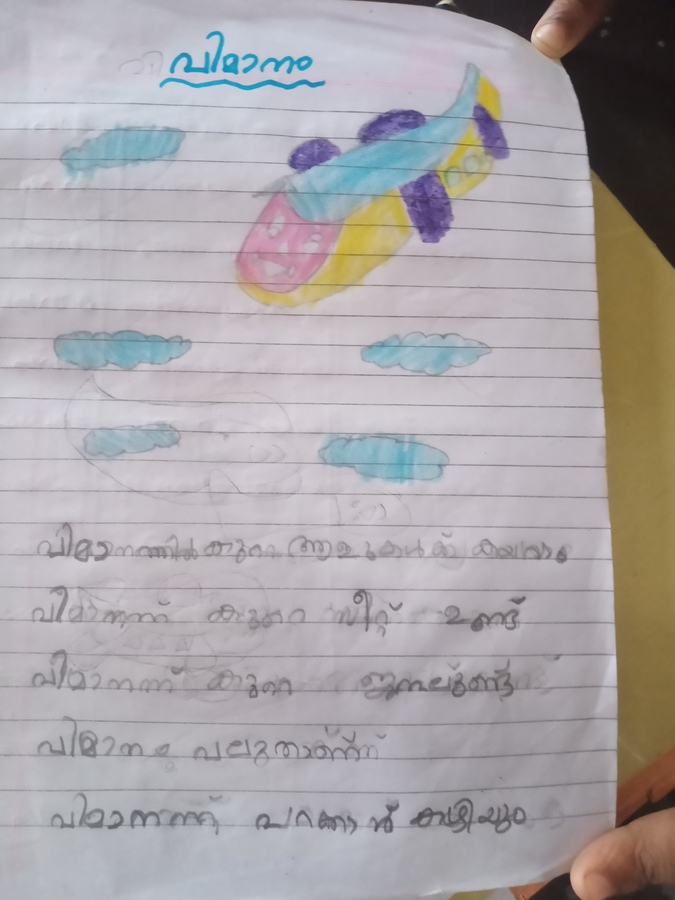 വിമാനം
വിമാനത്തിൽ കുറെ ആളുകൾക്ക് കയറാം
വിമാനത്ത് കുറെ സീറ്റ് ഉണ്ട്
വിമാനത്ത് കുറെ ജനലുണ്ട്
വിമാനം വലുതാണ്
വിമാനത്ത് പറക്കാൻ കഴിയും